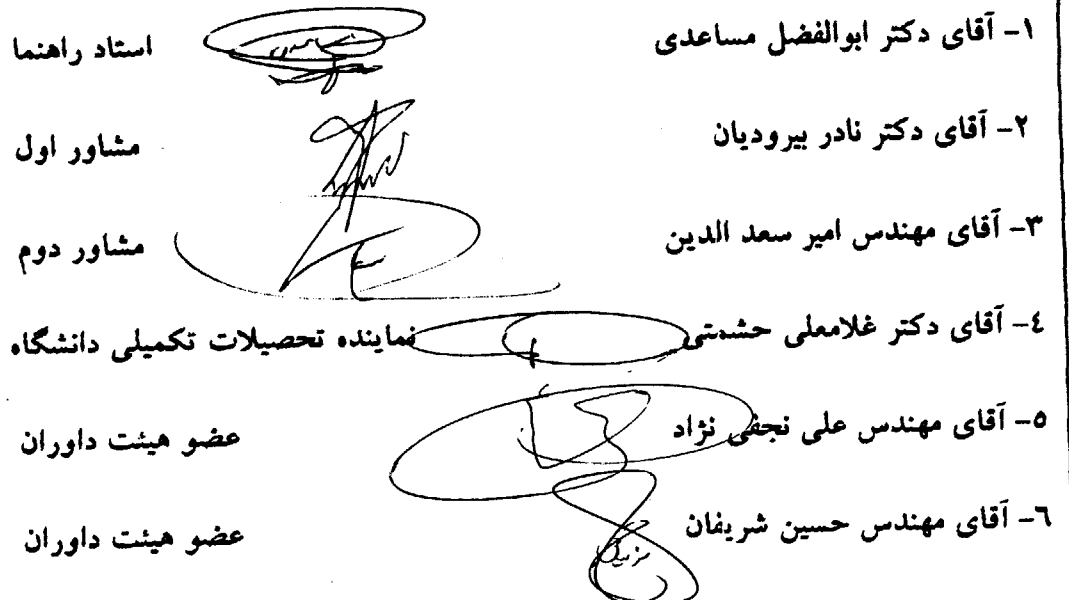 ۱- آقای دکتر ابوالفضل مساعدی استاد راهنما
۲- آقای دکتر نادر بیرودیان مشاور اول
۳- آقای مهندس امیر سعد الدین مشاور دوم
٤- آقای دکتر غلامعلی حشمتی نماینده تحصیلات تکمیلی دانشگاه
٥- آقای مهندس علی نجفی نژاد عضو هیئت داوران
٦- آقای مهندس حسین شریفان عضو هیئت داوران